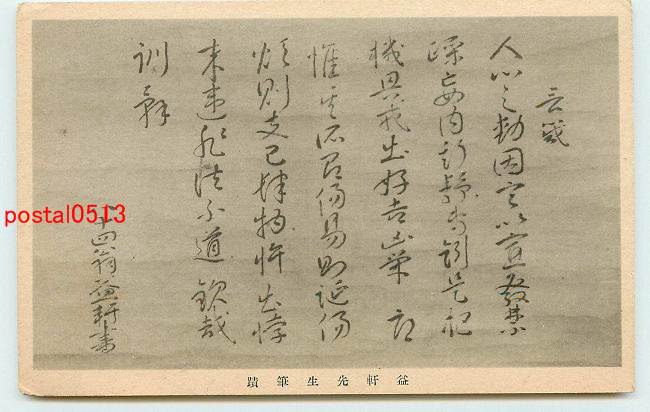 言箴
人心之動因言以宣發禁
躁妄内斯靜専矧是枢
機興戎出好吉凶栄辱
惟其所召傷易則誕傷
煩則支己肆物忤出悖
来違非法不道欽哉
訓辞
八十四翁益軒書
益軒先生筆蹟
postal0513